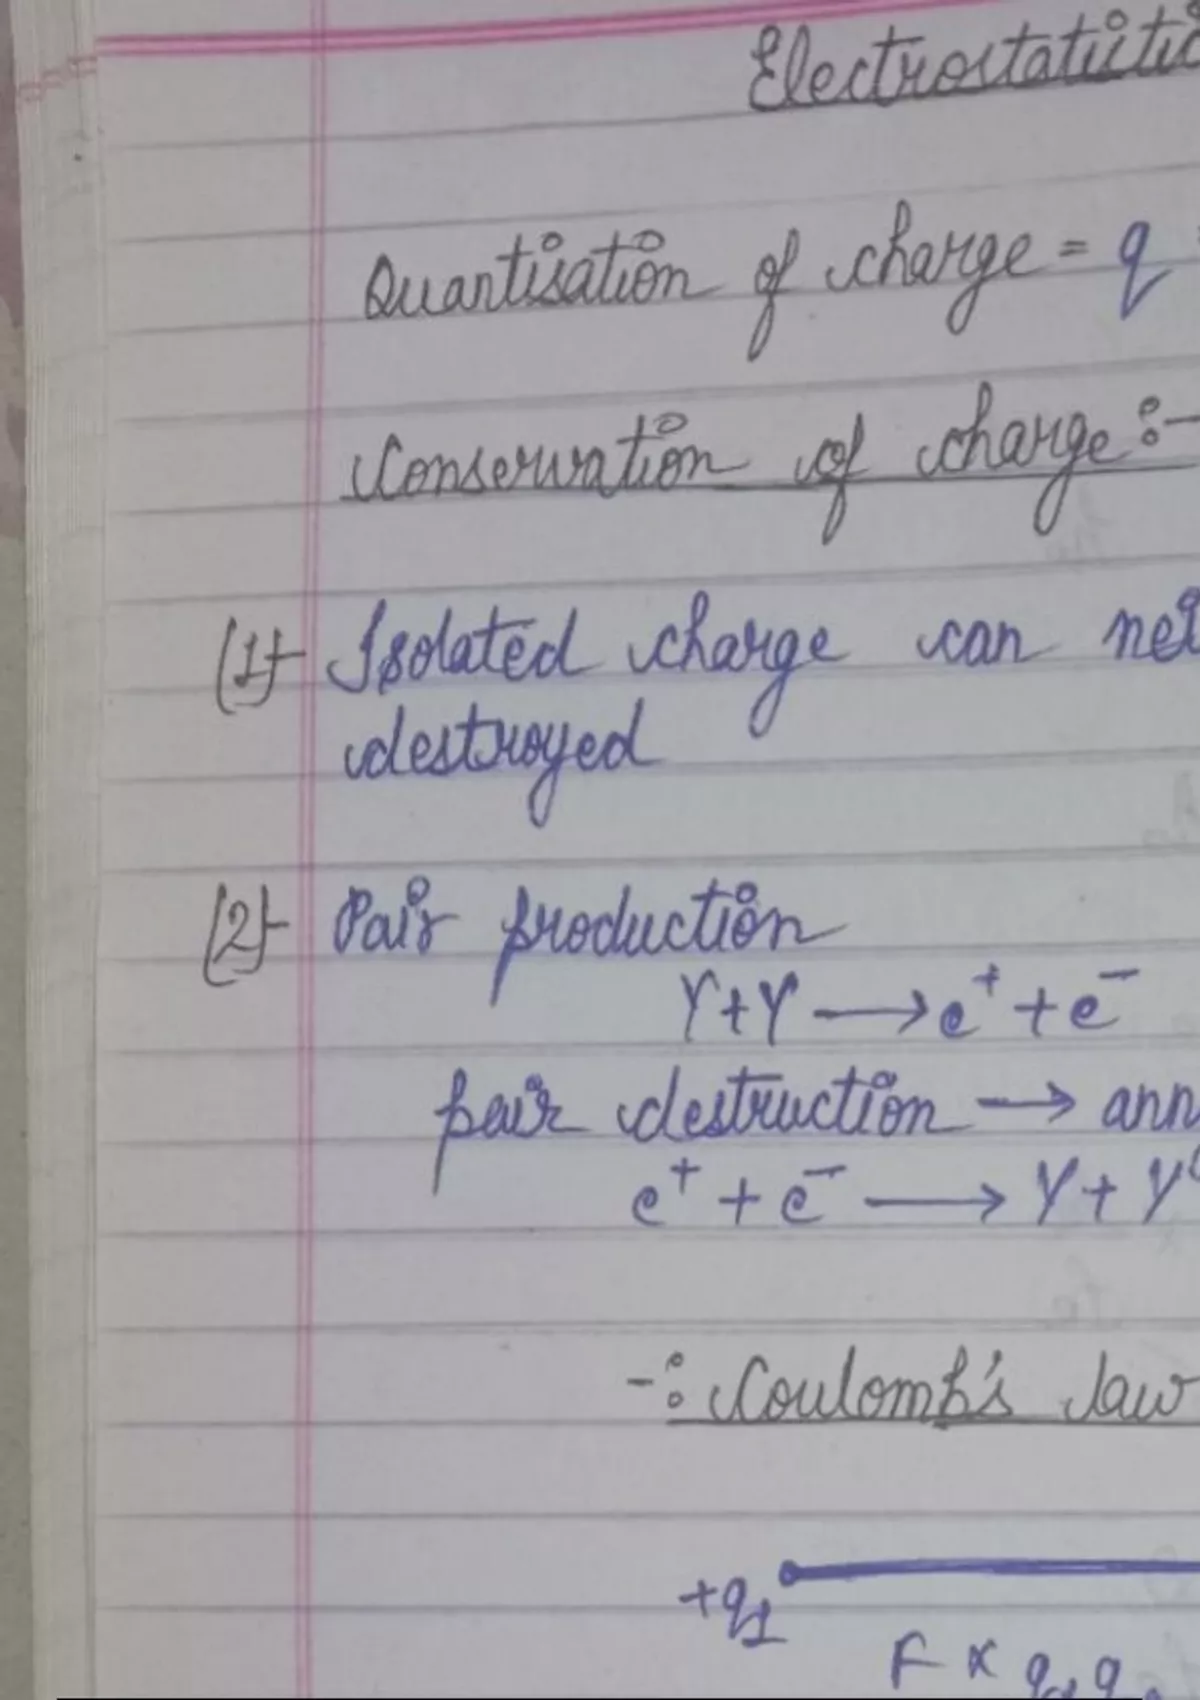 Electrostatistic
Quantisation of charge = q
Conservation of charge :-
(1)- Isolated charge can not
destroyed
(2)- Pair production
γ+γ ⟶ e⁺ + e⁻
pair destruction → ann
e⁺ + e⁻ ⟶ γ + γ
-: Coulomb's law
+q₁
F ∝ q₁ q